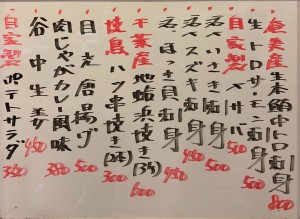 奄美産 生本鮪中トロ刺身 800
生トロサーモン刺身 500
自家製 〆サバ 500
活〆いさき刺身 500
活〆スズキ刺身 450
活ほっき貝刺身
千葉産 地蛤浜焼き(3ケ) 600
焼鳥 ハツ串焼き(2本) 300
目光唐揚げ 500
肉じゃがカレー風味 380
谷中生姜 450
自家製 ポテトサラダ 350